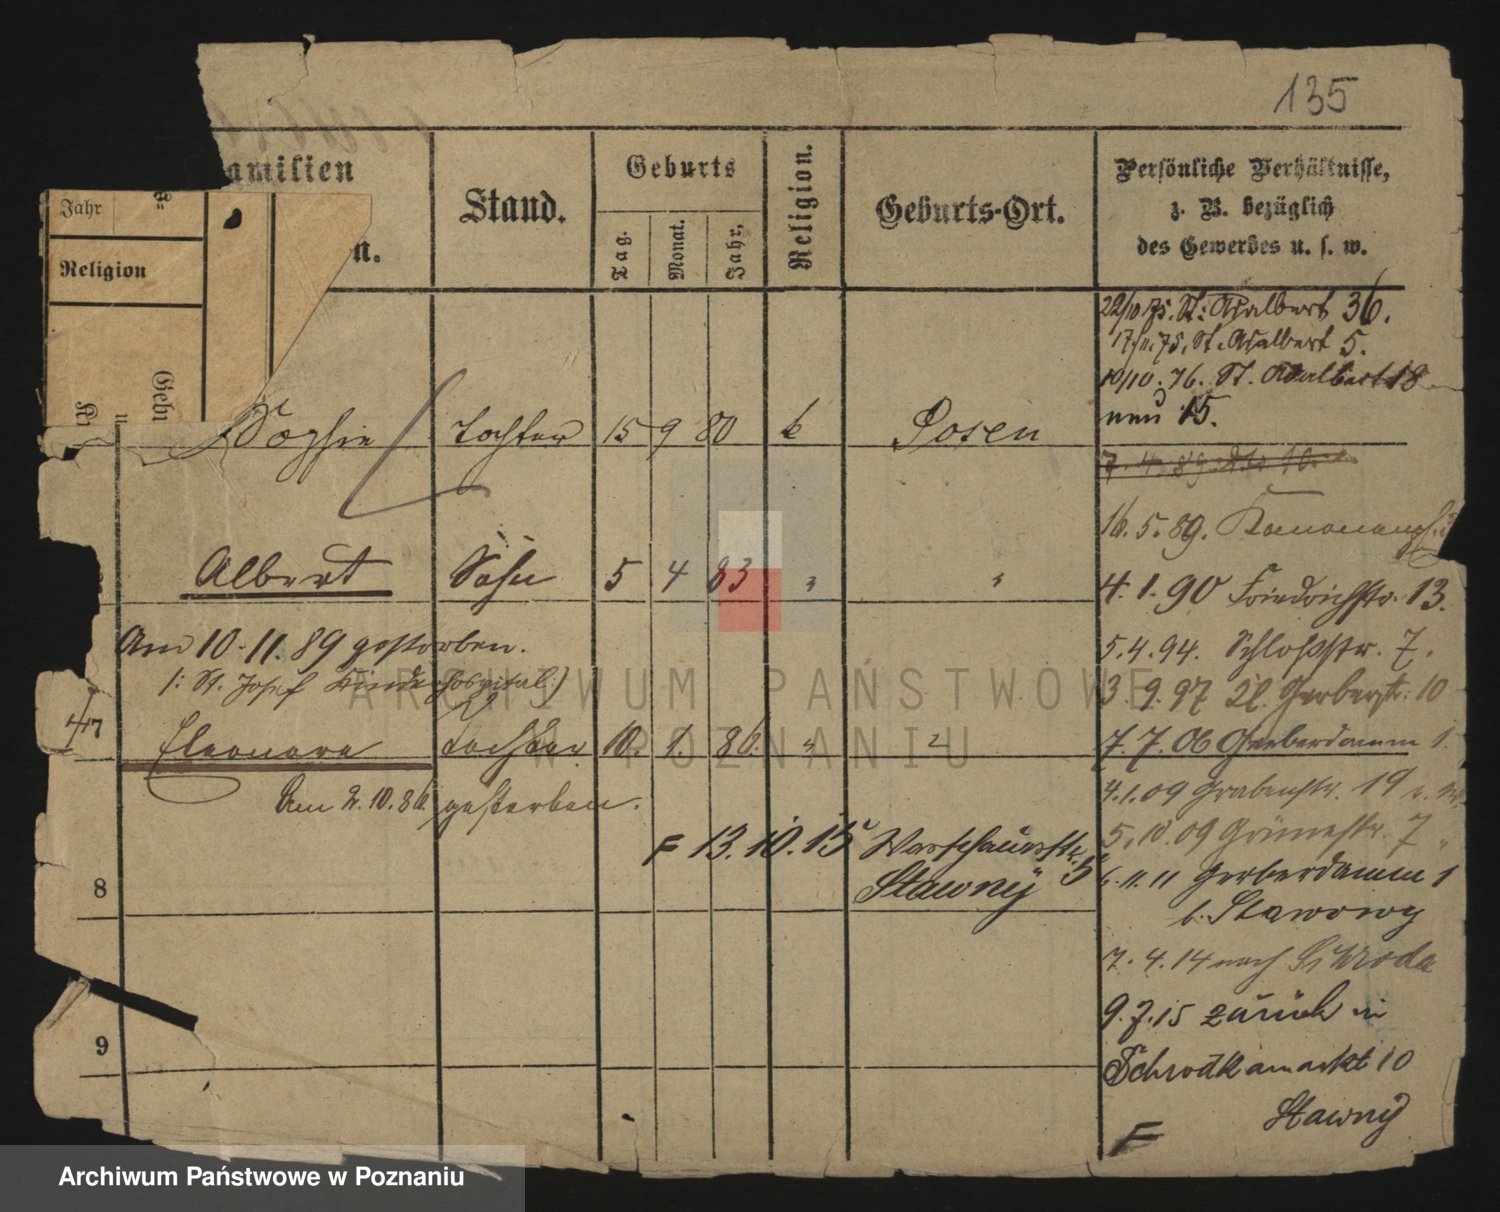 135
Jahr
Religion
Familien
n.
Stand.
Geburts
Tag.
Monat.
Jahr,
Religion.
Geburts-Ort.
Persönliche Verhältnisse,
z. B. bezüglich
des Gewerbes u. s. w.
22/10.75. St: Adalbert 36.
17/11.75. St. Adalbert 5.
10/10.76. St. Adalbert 18
neu 15.
Sophie Tochter 15 9 80 k Posen
16.5.89.
Albert Sohn 5 4 83 " "
4.1.90 Friedrichstr. 13.
Am 10.11.89 gestorben.
/: St. Josef Kinderhospital :/
5.4.94. Schloßstr. 7.
3.9.97 Kl. Gerberstr. 10
7
Eleonore Tochter 10. 1. 86. " "
7.7.06 Gerberdamm 1.
Am 2.10.86 gestorben.
4.1.09 Grabenstr. 19
5.10.09 Grünestr. 7
F 13.10.15 Warschauerstr. 5
Stawny
6.11.11 Gerberdamm 1
b. Stawowy
8
7.4.14 nach Schroda
9.7.15 zurück in
9
Schrodkamarkt 10
Stawny
F
ARCHIWUM PAŃSTWOWE
W POZNANIU
Archiwum Państwowe w Poznaniu